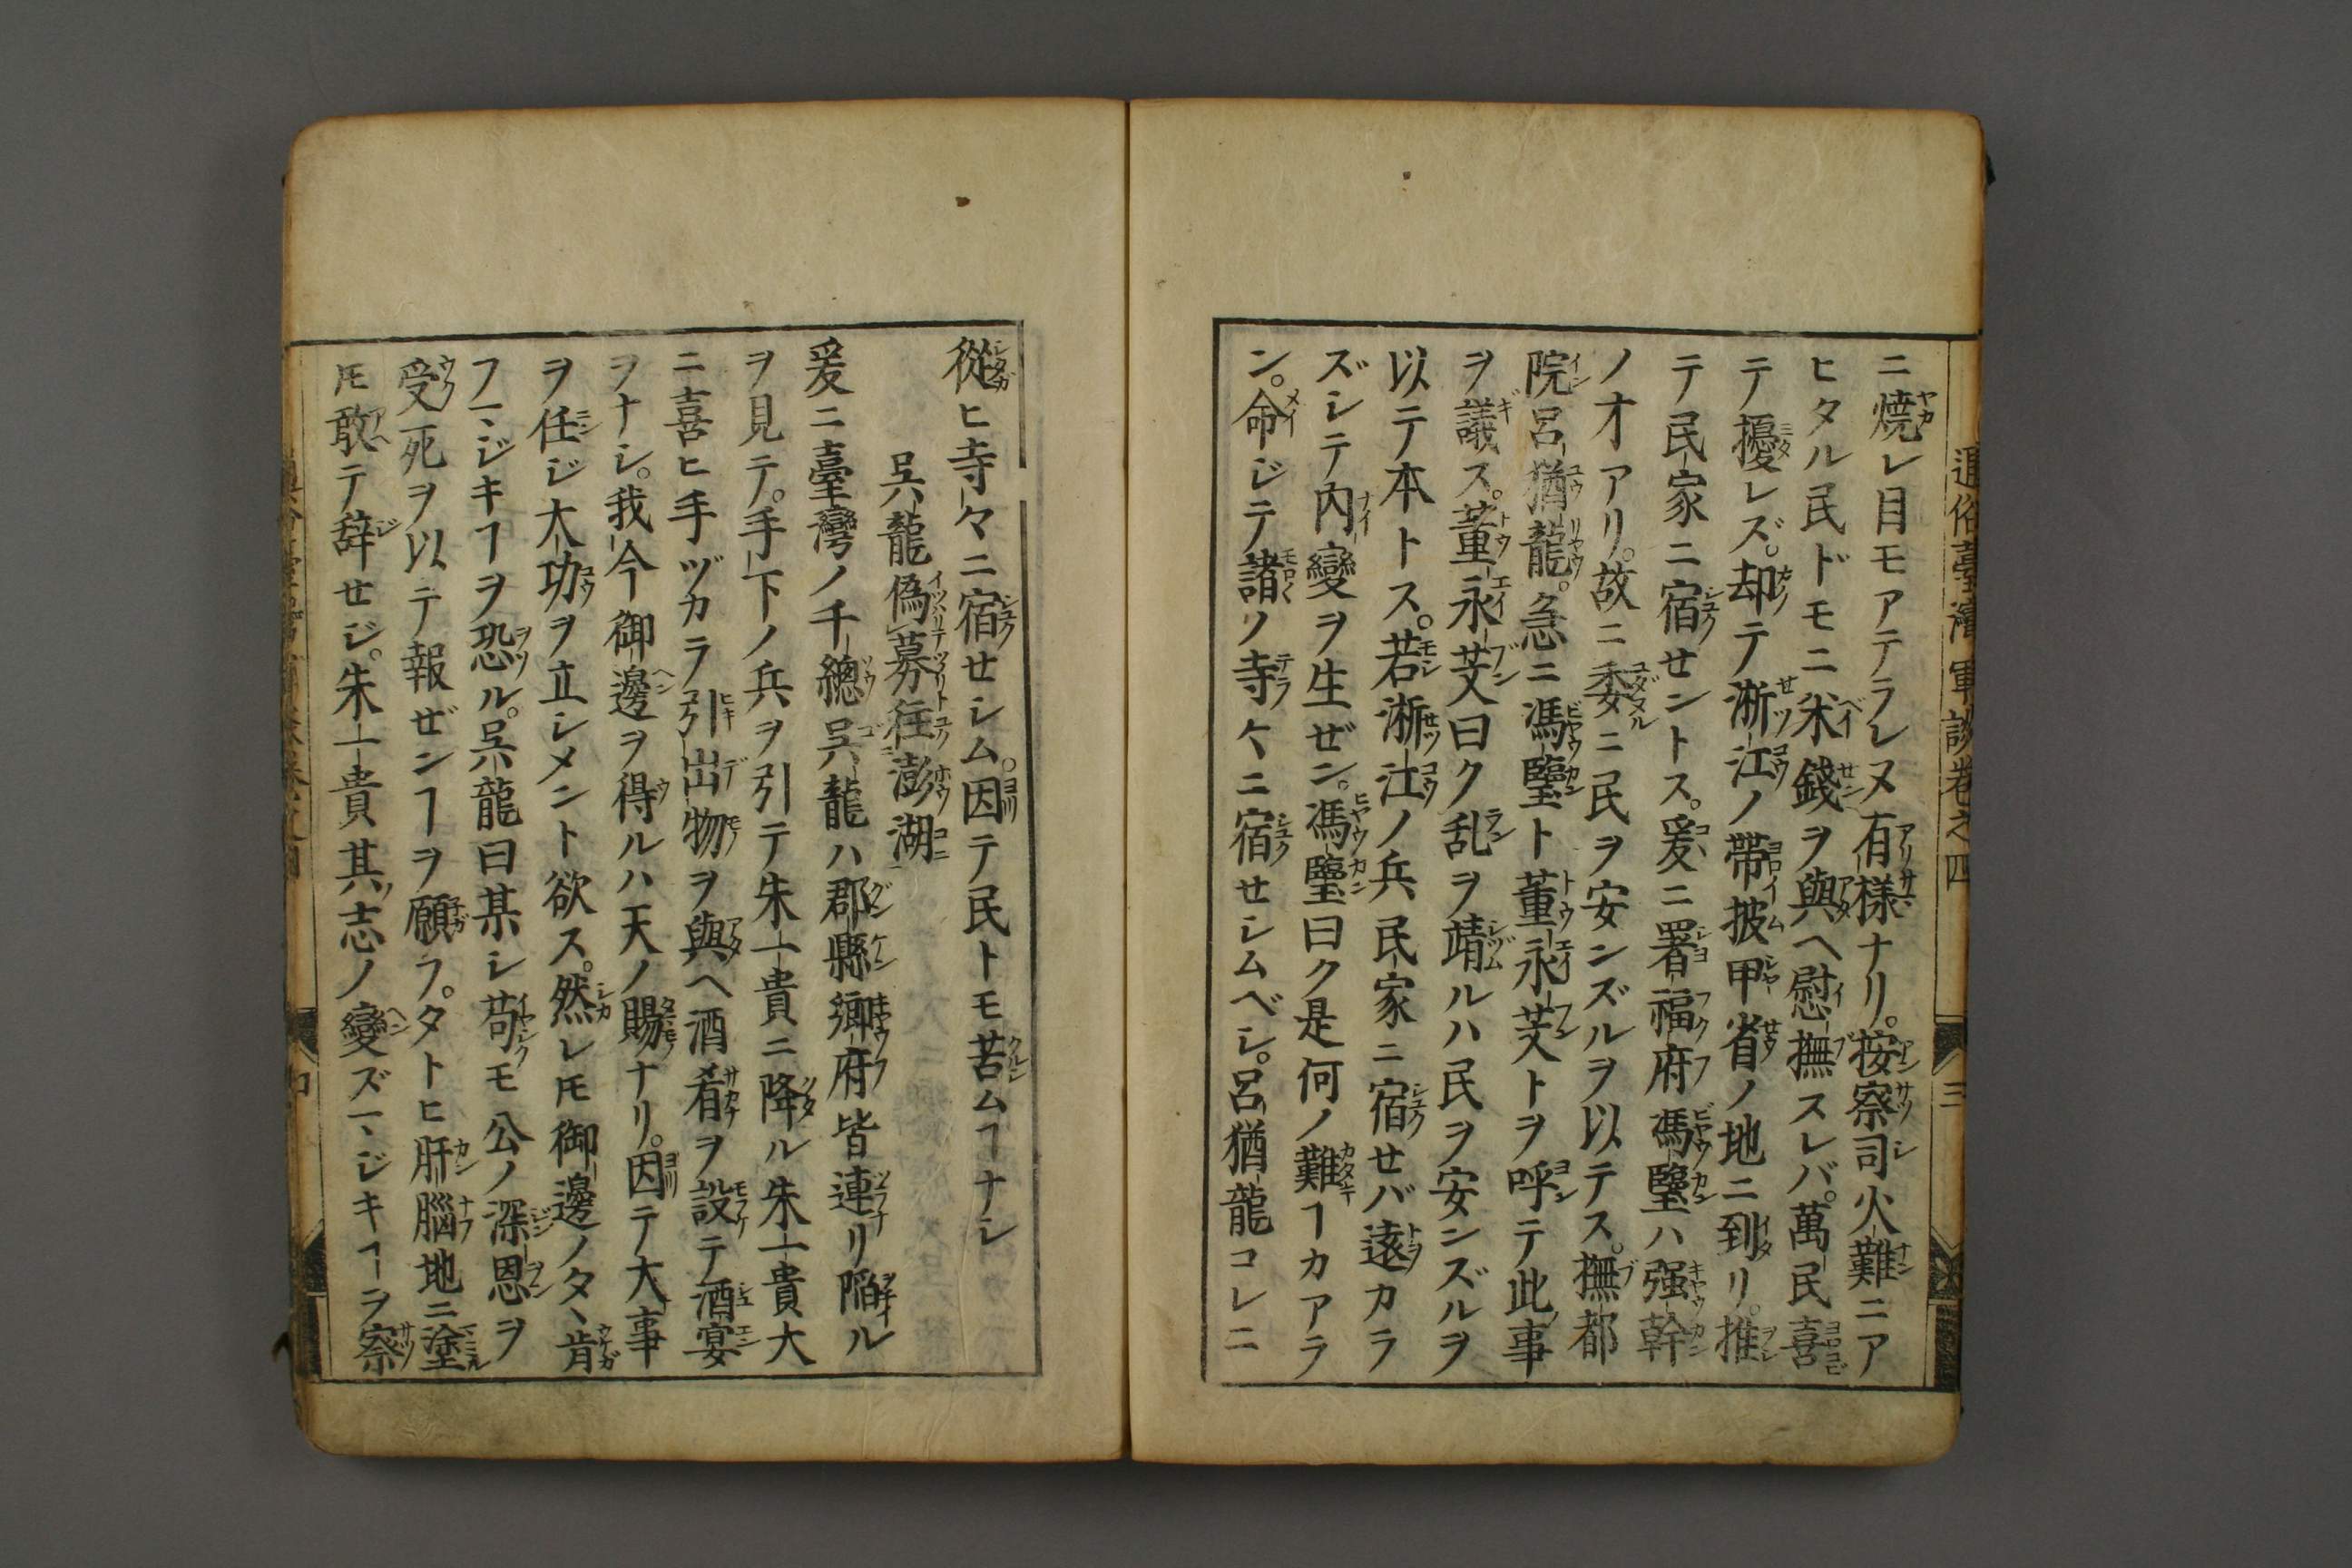 通俗臺灣軍談卷之四
三
ニ焼レ目モアテラレヌ有様ナリ。按察司火難ニア
ヒタル民ドモニ米錢ヲ與ヘ慰撫スレバ。萬民喜
テ擾レズ。却テ淅江ノ帶披甲省ノ地ニ到リ。推
テ民家ニ宿セントス。爰ニ署福府馮鑒ハ强幹
ノオアリ。故ニ委ニ民ヲ安ンズルヲ以テス。撫都
院呂猶龍。急ニ馮鑒ト董永芠トヲ呼テ此事
ヲ議ス。董永芠曰ク乱ヲ靖ルハ民ヲ安ンズルヲ
以テ本トス。若淅江ノ兵民家ニ宿セバ遠カラ
ズシテ內變ヲ生ゼン。馮鑒曰ク是何ノ難ヿカアラ
ン。命ジテ諸ノ寺々ニ宿セシムベシ。呂猶龍コレニ
從ヒ寺々ニ宿セシム。因テ民トモ苦ムヿナシ
吳龍偽募往澎湖
爰ニ臺灣ノ千總吳龍ハ郡縣鄉府皆連リ陷ル
ヲ見テ。手下ノ兵ヲ引テ朱一貴ニ降ル朱一貴大
ニ喜ヒ手ヅカラ引出物ヲ與ヘ酒肴ヲ設テ酒宴
ヲナシ。我今御邊ヲ得ルハ天ノ賜ナリ。因テ大事
ヲ任ジ大功ヲ立シメント欲ス。然レ𪜈御邊ノタヽ肯
フマジキヿヲ恐ル。吳龍曰某シ苟モ公ノ深恩ヲ
受死ヲ以テ報ゼンヿヲ願フ。タトヒ肝腦地ニ塗
𪜈敢テ辞セジ。朱一貴其志ノ變ズマジキヿヲ察